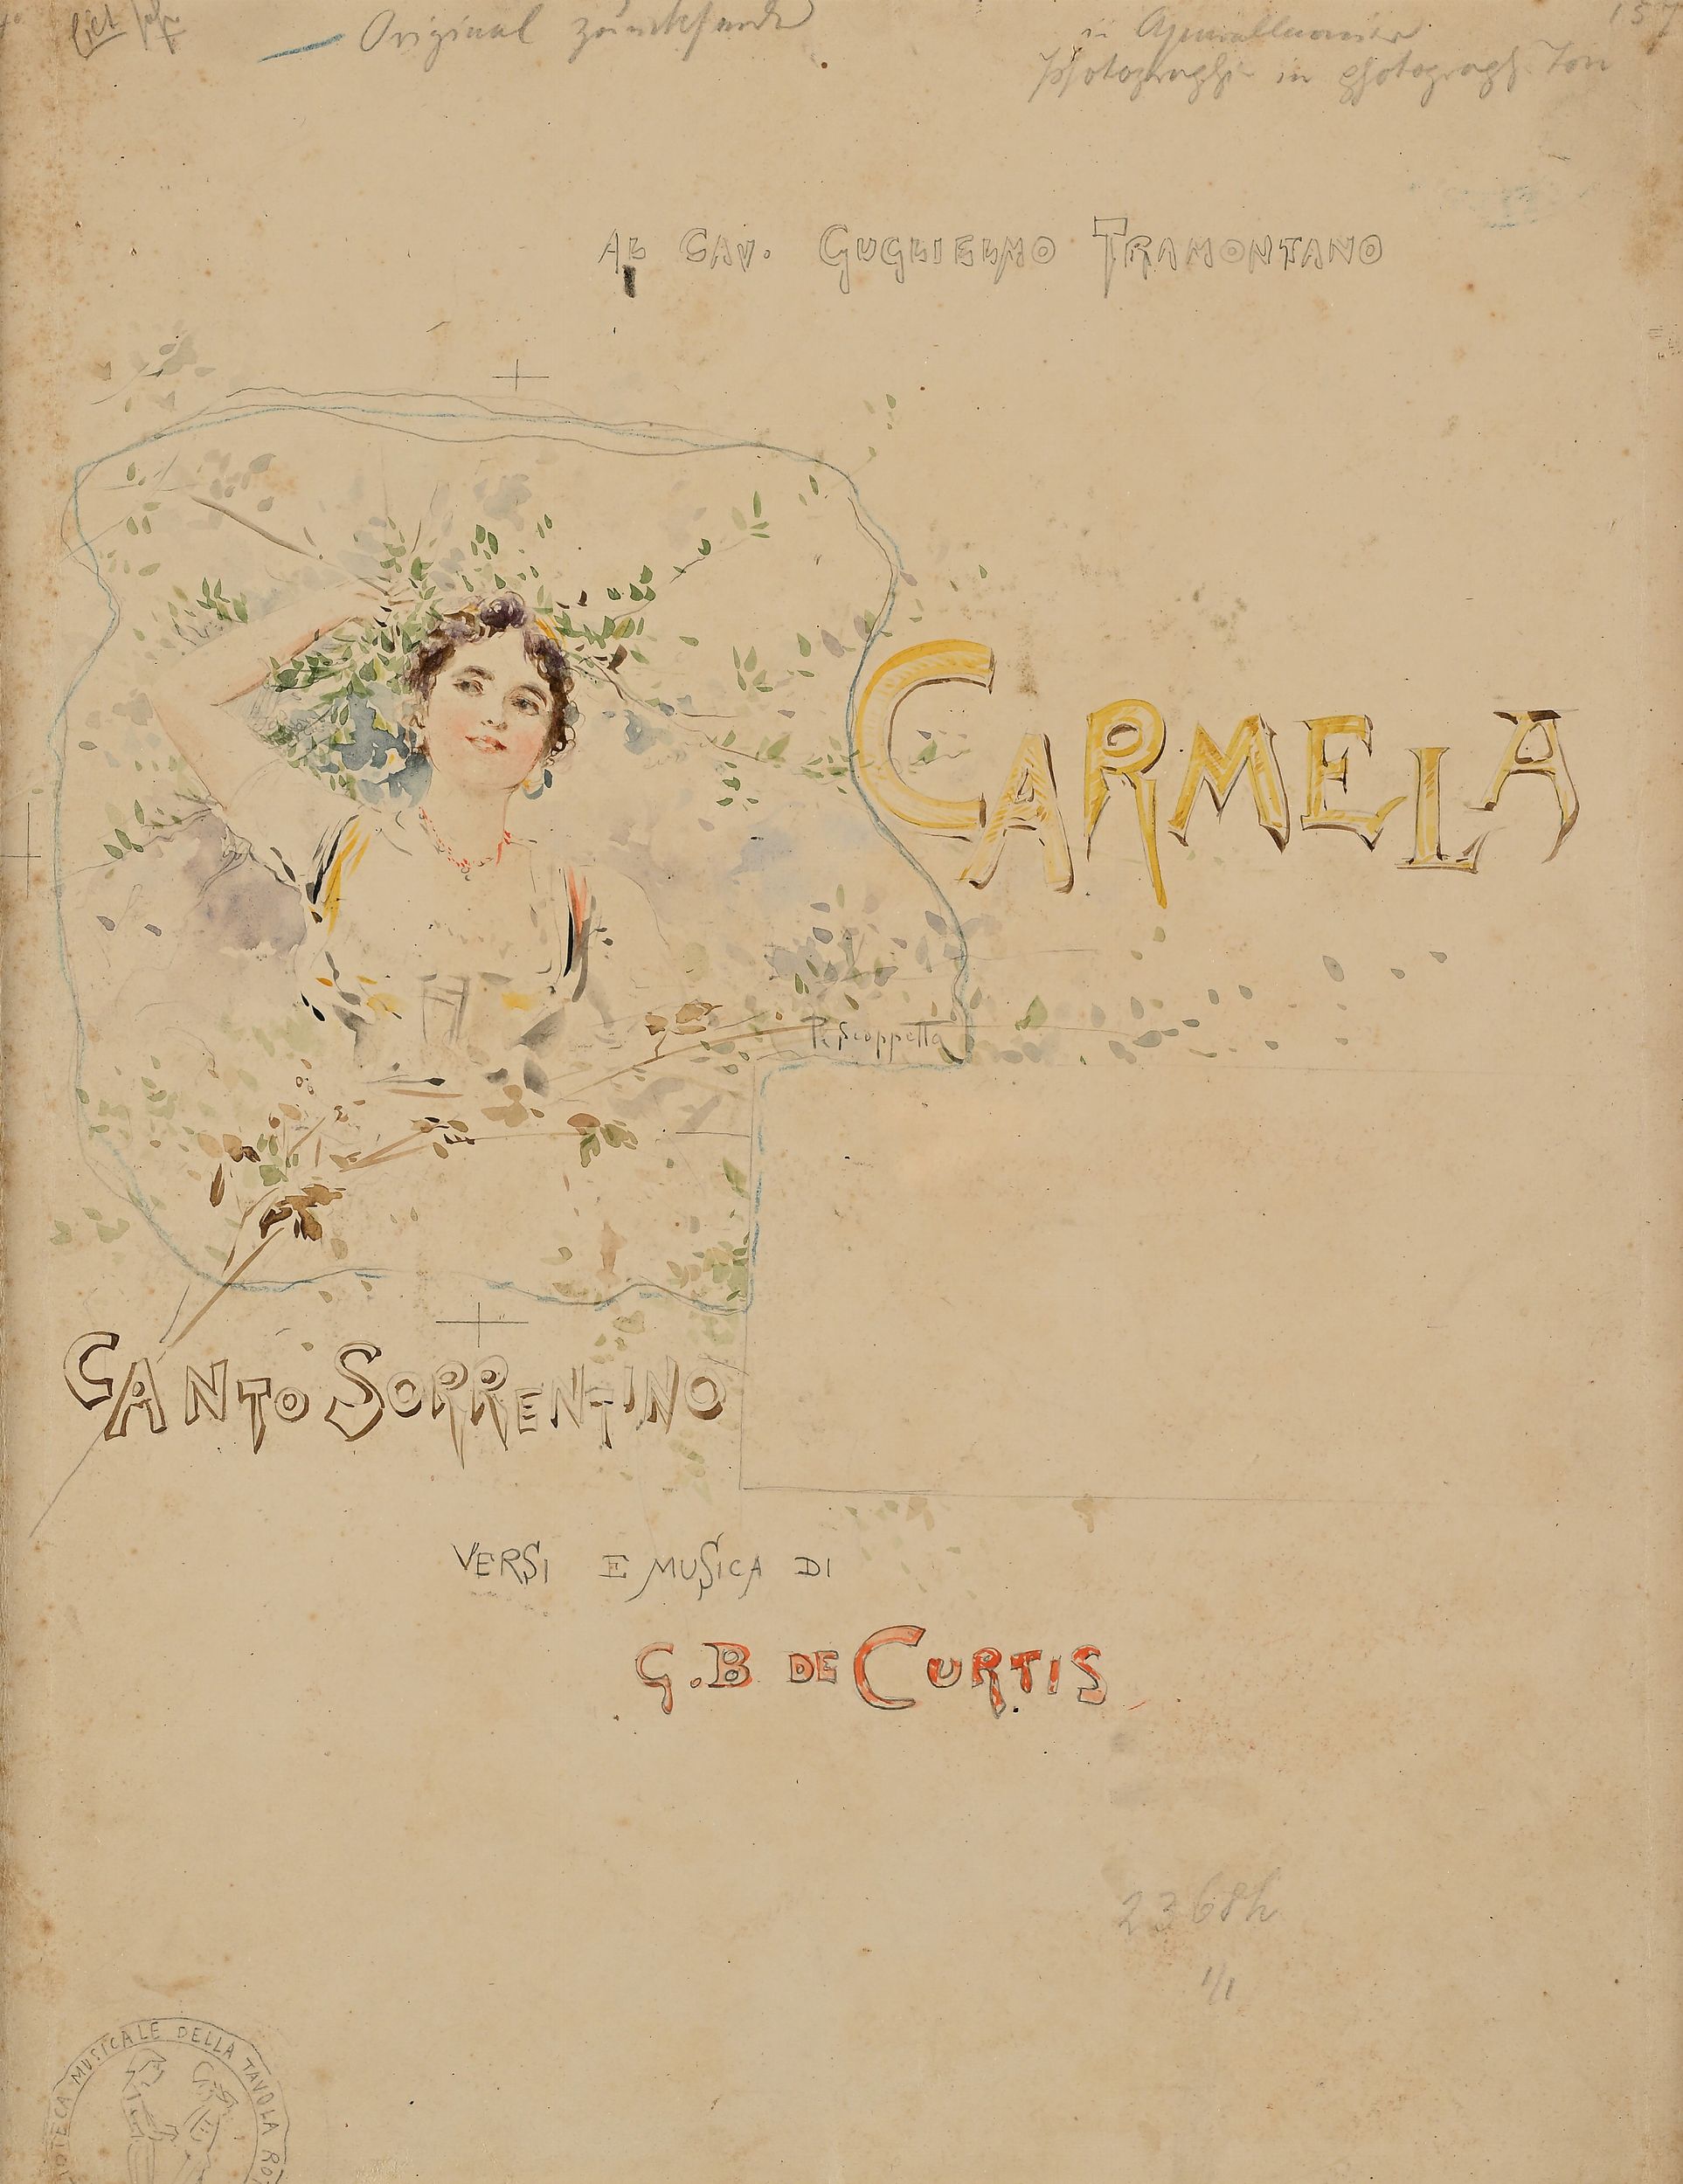 Original zurück
in
Photographie in photograph. Ton
157
AL CAV. GUGLIELMO TRAMONTANO
CARMELA
P. Scoppetta
CANTO SORRENTINO
VERSI E MUSICA DI
G.B DE CURTIS
2368h
1/1
IOTECA MUSICALE DELLA TAVOLA RO